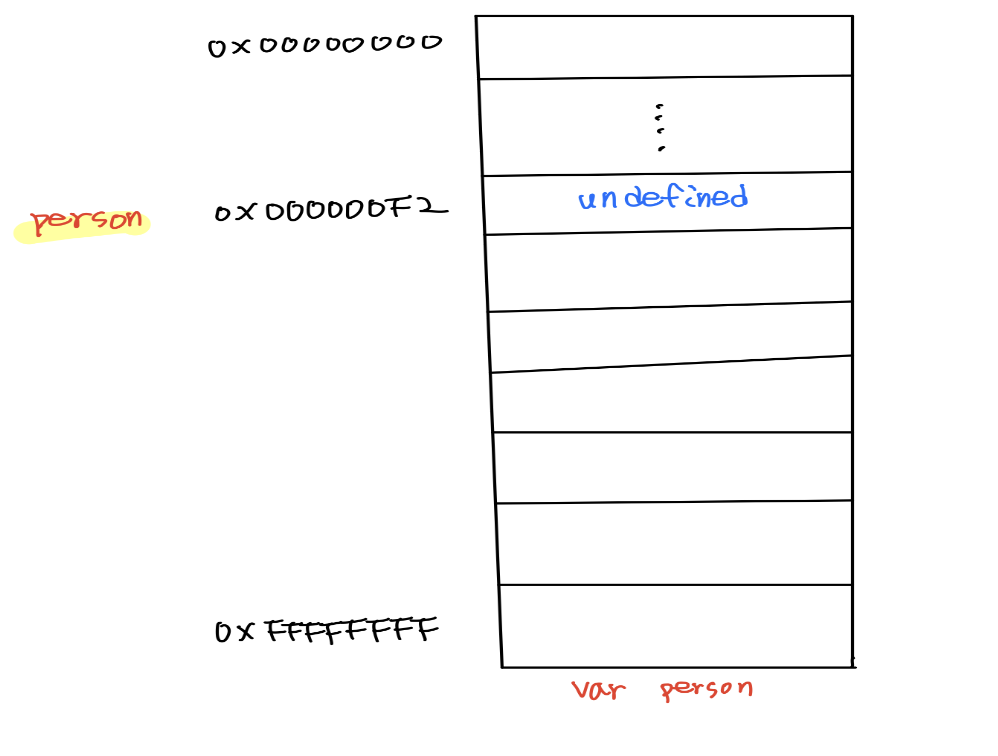 0x00000000
person 0x000000F2 undefined
0xFFFFFFFF
var person